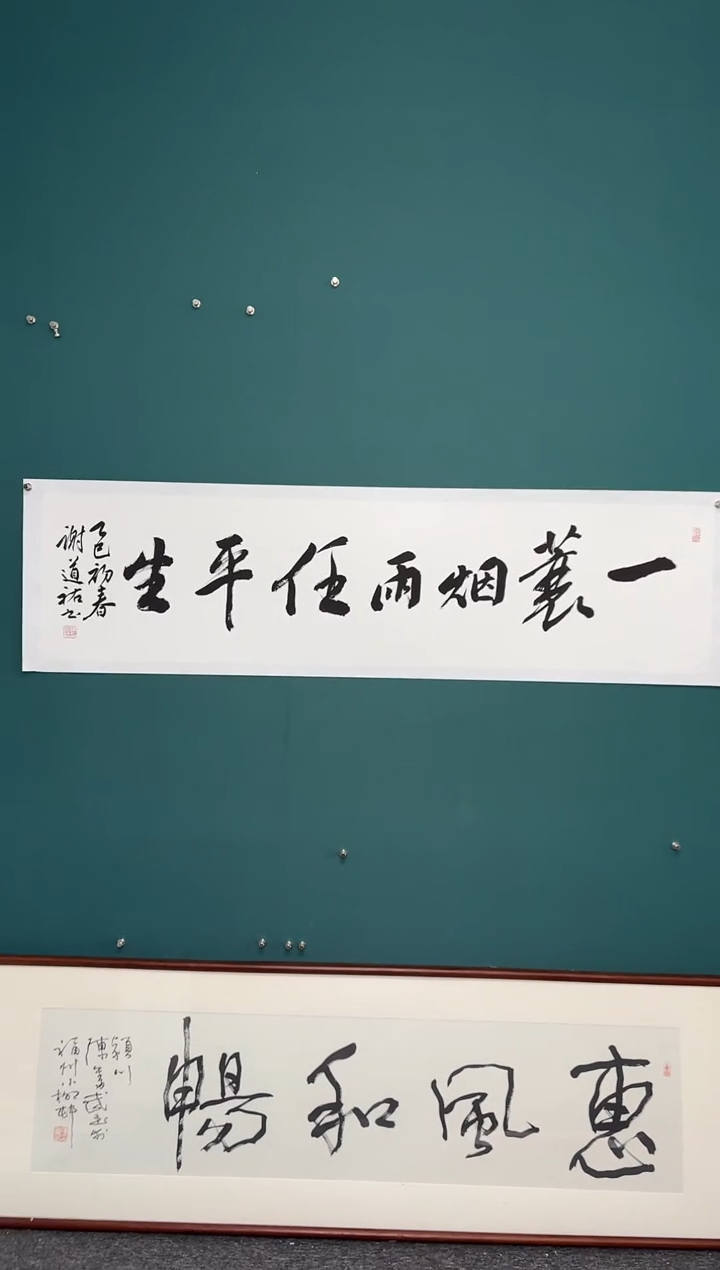 一蓑烟雨任平生
乙巳初春
谢道祐书
惠風和暢
福州小柳邨